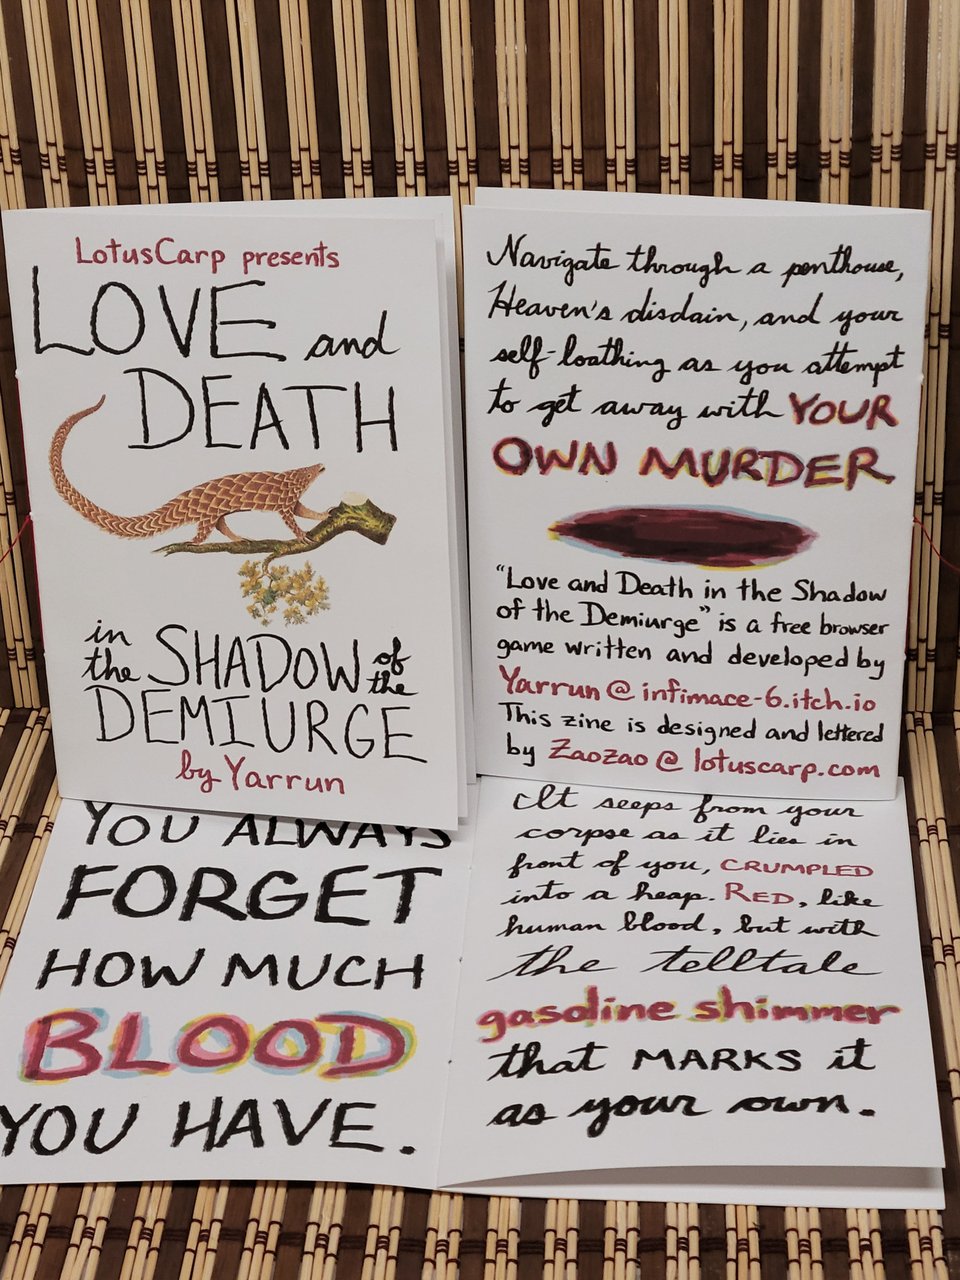 LotusCarp presents
LOVE and
DEATH
in
the SHADOW of
the
DEMIURGE
by Yarrun
Navigate through a penthouse,
Heaven's disdain, and your
self-loathing as you attempt
to get away with YOUR
OWN MURDER
"Love and Death in the Shadow
of the Demiurge" is a free browser
game written and developed by
Yarrun @ infimace-6.itch.io
This zine is designed and lettered
by Zaozao @ lotuscarp.com
YOU ALWAYS
FORGET
HOW MUCH
BLOOD
YOU HAVE.
It seeps from your
corpse as it lies in
front of you, CRUMPLED
into a heap. RED, like
human blood, but with
the telltale
gasoline shimmer
that MARKS it
as your own.